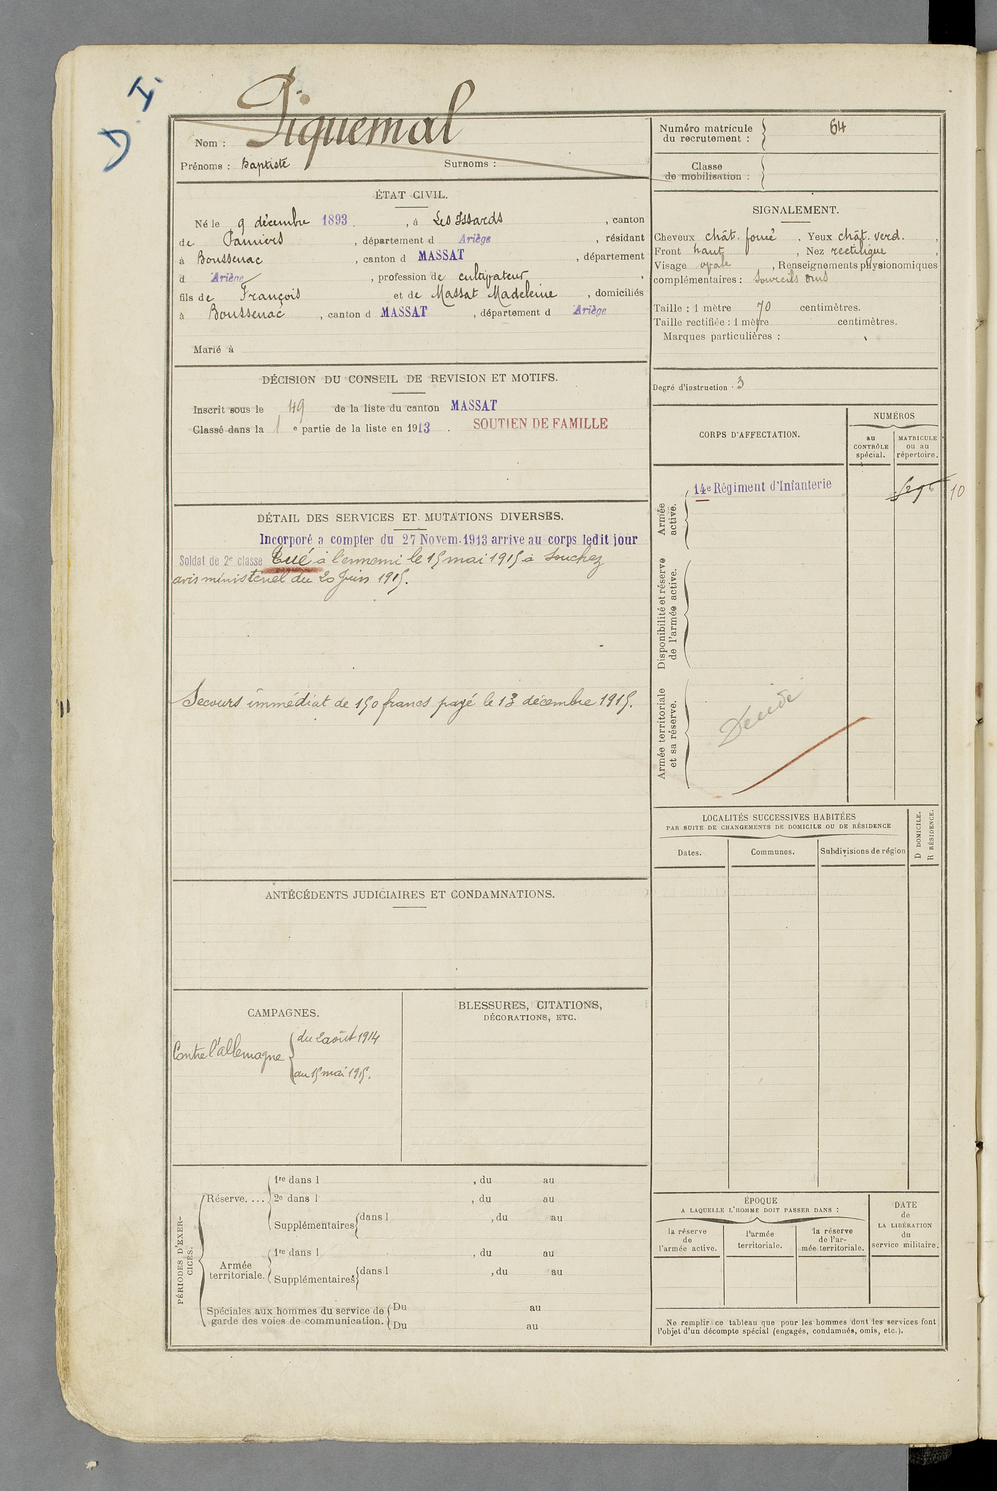 D. I.
Piquemal
Nom :
Prénoms : Baptiste Surnoms :
Numéro matricule du recrutement : 64
Classe de mobilisation :
ÉTAT CIVIL.
Né le 9 décembre 1893, à Les Issards, canton
de Pamiers, département d Ariège, résidant
à Boussenac, canton d MASSAT, département
d Ariège, profession de cultivateur,
fils de François et de Massat Madeleine, domiciliés
à Boussenac, canton d MASSAT, département d Ariège
Marié à
SIGNALEMENT.
Cheveux chât. foncé, Yeux chât. verd.,
Front haut, Nez rectiligne,
Visage ovale, Renseignements physionomiques
complémentaires : Sourcils
Taille : 1 mètre 70 centimètres.
Taille rectifiée : 1 mètre centimètres.
Marques particulières :
Degré d'instruction : 3
DÉCISION DU CONSEIL DE REVISION ET MOTIFS.
Inscrit sous le 49 de la liste du canton MASSAT
Classé dans la 1 e partie de la liste en 1913. SOUTIEN DE FAMILLE
CORPS D'AFFECTATION.
NUMÉROS
au CONTRÔLE spécial.
MATRICULE ou au répertoire.
Armée active.
14e Régiment d'Infanterie
10
Disponibilité et réserve de l'armée active.
Armée territoriale et sa réserve.
Décédé
DÉTAIL DES SERVICES ET MUTATIONS DIVERSES.
Incorporé a compter du 27 Novem. 1913 arrive au corps ledit jour
Soldat de 2e classe Tué à l'ennemi le 15 mai 1915 à Souchez
avis ministériel du 20 Juin 1915.
Secours immédiat de 150 francs payé le 13 décembre 1915.
LOCALITÉS SUCCESSIVES HABITÉES
PAR SUITE DE CHANGEMENTS DE DOMICILE OU DE RÉSIDENCE
Dates.
Communes.
Subdivisions de région
D DOMICILE.
R RÉSIDENCE.
ANTÉCÉDENTS JUDICIAIRES ET CONDAMNATIONS.
CAMPAGNES.
Contre l'allemagne
du 2 août 1914
au 15 mai 1915.
BLESSURES, CITATIONS,
DÉCORATIONS, ETC.
PÉRIODES D'EXERCICES.
Réserve. ...
1re dans l , du au
2e dans l , du au
Supplémentaires dans l , du au
Armée territoriale.
1re dans l , du au
Supplémentaires dans l , du au
Spéciales aux hommes du service de
garde des voies de communication.
Du au
Du au
ÉPOQUE
A LAQUELLE L'HOMME DOIT PASSER DANS :
la réserve
de
l'armée active.
l'armée
territoriale.
la réserve
de l'ar-
mée territoriale.
DATE
de
LA LIBÉRATION
du
service militaire.
Ne remplir ce tableau que pour les hommes dont les services font
l'objet d'un décompte spécial (engagés, condamnés, omis, etc.).